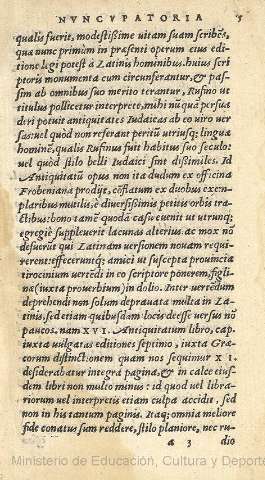 NVNCVPATORIA 5
qualis fuerit, modestissime uitam suam scribēs,
quæ nunc primùm in præsenti operum eius edi
tione legi potest à Latinis hominibus. huius scri
ptoris monumenta cum circunferantur, & pas-
sim ab omnibus suo merito terantur, Rufino ut
titulus pollicetur interprete, mihi nūquā persua
deri potuit antiquitates Iudaicas ab eo uiro uer
sas: uel quòd non referant peritū utriusq; linguæ
hominē, qualis Rufinus fuit habitus suo seculo:
uel quòd stilo belli Iudaici sint dissimiles. Id
Antiquitatū opus non ita dudum ex officina
Frobeniana prodijt, cōflatum ex duobus exem-
plaribus mutilis, è diuersissimis petitis orbis tra-
ctibus: bono tamē quodā casu euenit ut utrunq;
egregiè suppleuerit lacunas alterius. ac mox nō
defuerūt qui Latinam uersionem nouam requi-
rerent: effeceruntq́; amici ut suscepta prouincia
tirocinium uertēdi in eo scriptore ponerem, figli-
næ (iuxta prouerbium) in dolio. Inter uertēdum
deprehendi non solum deprauata multa in La-
tinis, sed etiam quibusdam locis deesse uersus nō
paucos. nam XVI. Antiquitatum libro, cap.
iuxta uulgatas editiones septimo, iuxta Græ-
corum distinctionem quam nos sequimur XI.
desiderabatur integra pagina, & in calce eius-
dem libri non multo minus: id quod uel libra-
riorum uel interpretis etiam culpa accidit, sed
non in his tantum paginis. Itaq; omnia meliore
fide conatus sum reddere, stilo planiore, nec ru-
a 3 dio
Ministerio de Educación, Cultura y Deporte